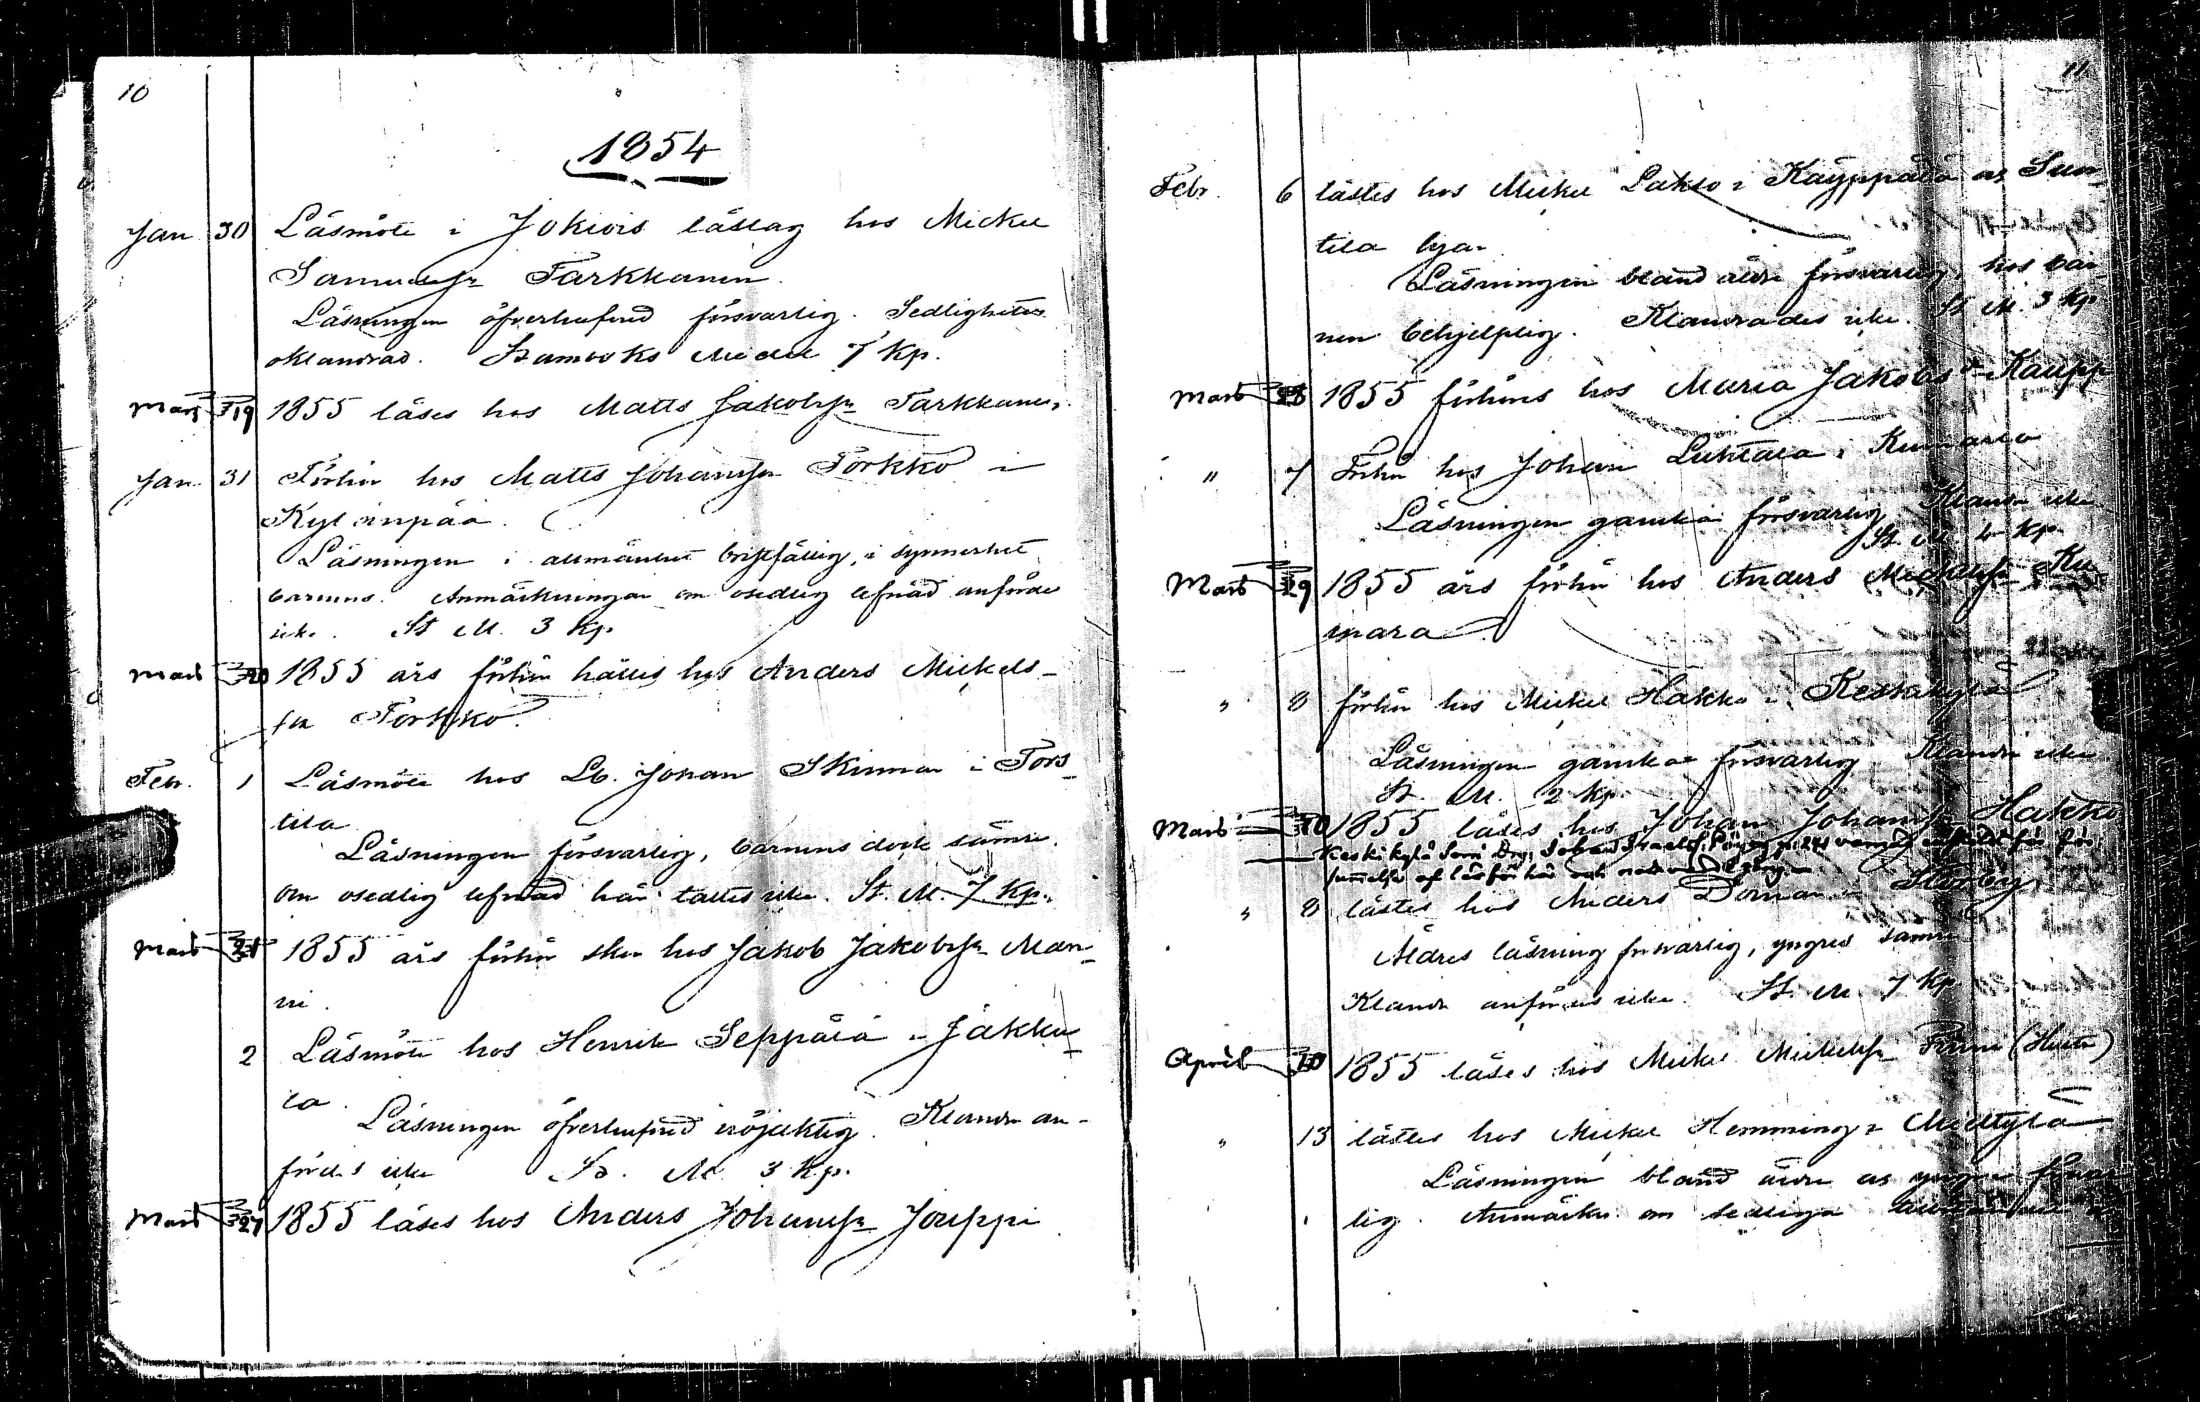 10
1854
Jan 30 Läsmöte i Jokiois läslag hos Mickel
Samuelsn Tarkkanen.
Läsningen öfverhufvud försvarlig. Sedligheten
oklandrad. Stamboks Medel 7 Kp.
Mars 19 1855 läses hos Matts Jakobsn Tarkkanen.
Jan. 31 Förhör hos Matts Johansson Torkko i
Kylänpää.
Läsningen i allmänhet bristfällig, i synnerhet
barnens. Anmärkningar om osedlig lefnad anfördes
icke. St M. 3 Kp.
Mars 20 1855 års förhör hålles hos Anders Mickels-
sn Torkko.
Febr. 1 Läsmöte hos Lb. Johan Skinnar i Tors-
tila
Läsningen försvarlig, barnens dock sämre.
Om osedlig lefnad här taltes icke. St. M. 7 Kp.
Mars 21 1855 års förhör sker hos Jakob Jakobsn Man-
ni.
2 Läsmöte hos Henrik Seppälä i Jakku-
la.
Läsningen öfverhufvud nöjaktig. Klander an-
fördes icke St. M. 3 Kp.
Mars 27 1855 läses hos Anders Johansn Jouppi
11
Febr. 6 lästes hos Mickel Lakso i Käyppälä as Sun-
tila byar
Läsningen bland äldre försvarlig, hos bar-
nen behjelplig. Klandrades icke. St M. 3 Kp
Mars 28 1855 förhöres hos Maria Jakobs dr Kaupp
" 7 Förhör hos Johan Luhtala i Kuumara
Läsningen ganska försvarlig. Klander icke
St. M. 6 Kp.
Mars 29 1855 års förhör hos Anders Michelsn Ku-
mara
" 8 förhör hos Mickel Hakko i Keskikylä
Läsningen ganska försvarlig. Klander icke
St. M. 2 Kp.
Mars 30 1855 läses hos Johan Johansn Hakko
Keskikylä Som Drg. Israelsn för för-
summelse af läsför här och
" 8 lästes hos Anders Doman i Storby
Äldres läsning försvarlig, yngres sämre
Klander anfördes icke. St. M. 7 Kp
April 10 1855 läses hos Mickel Mickelsn
" 13 lästes hos Mickel Hemming i Miettylä
Läsningen bland äldre as yngre försvar-
lig. Anmärkn. om sedliga